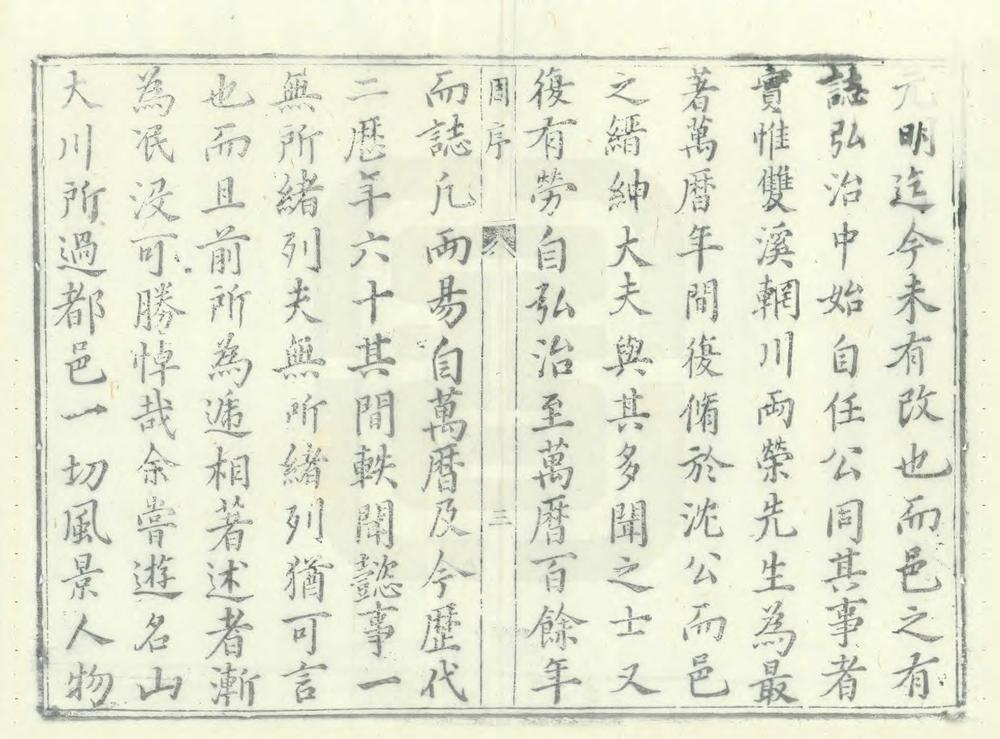 元明迄今未有改也而邑之有
誌弘治中始自任公同其事者
實惟雙溪輞川兩榮先生為最
著萬曆年間復脩於沈公而邑
之縉紳大夫與其多聞之士又
復有勞自弘治至萬曆百餘年
周序 三
而誌凢兩易自萬曆及今歷代
二歷年六十其間軼聞懿事一
無所緒列夫無所緒列猶可言
也而且前所為遞相著述者漸
為泯沒可勝悼哉余嘗遊名山
大川所過都邑一切風景人物